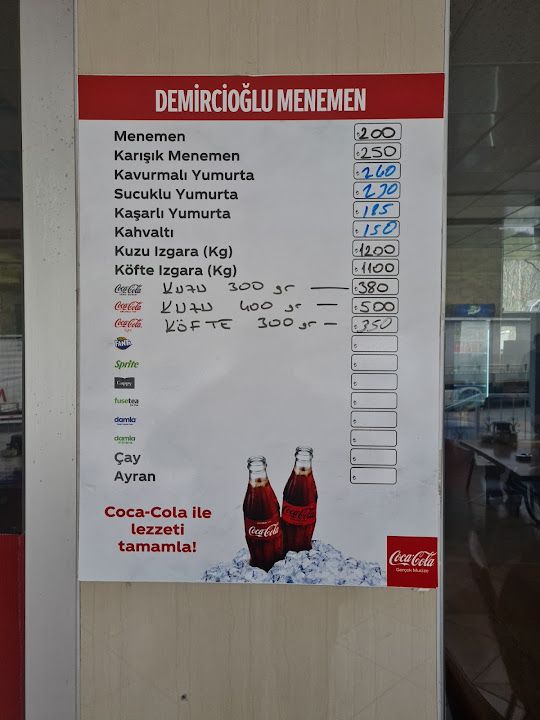 DEMİRCİOĞLU MENEMEN
Menemen 200
Karışık Menemen 250
Kavurmalı Yumurta 260
Sucuklu Yumurta 230
Kaşarlı Yumurta 185
Kahvaltı 150
Kuzu Izgara (Kg) 1200
Köfte Izgara (Kg) 1100
Coca-Cola KUZU 300 gr — 380
Coca-Cola KUZU 400 gr — 500
Coca-Cola light KÖFTE 300 gr — 350
FANTA
Sprite
Cappy
fusetea
damla
damla
Çay
Ayran
Coca-Cola ile
lezzeti
tamamla!
Coca-Cola
Coca-Cola
Coca-Cola
Gerçek Mucize